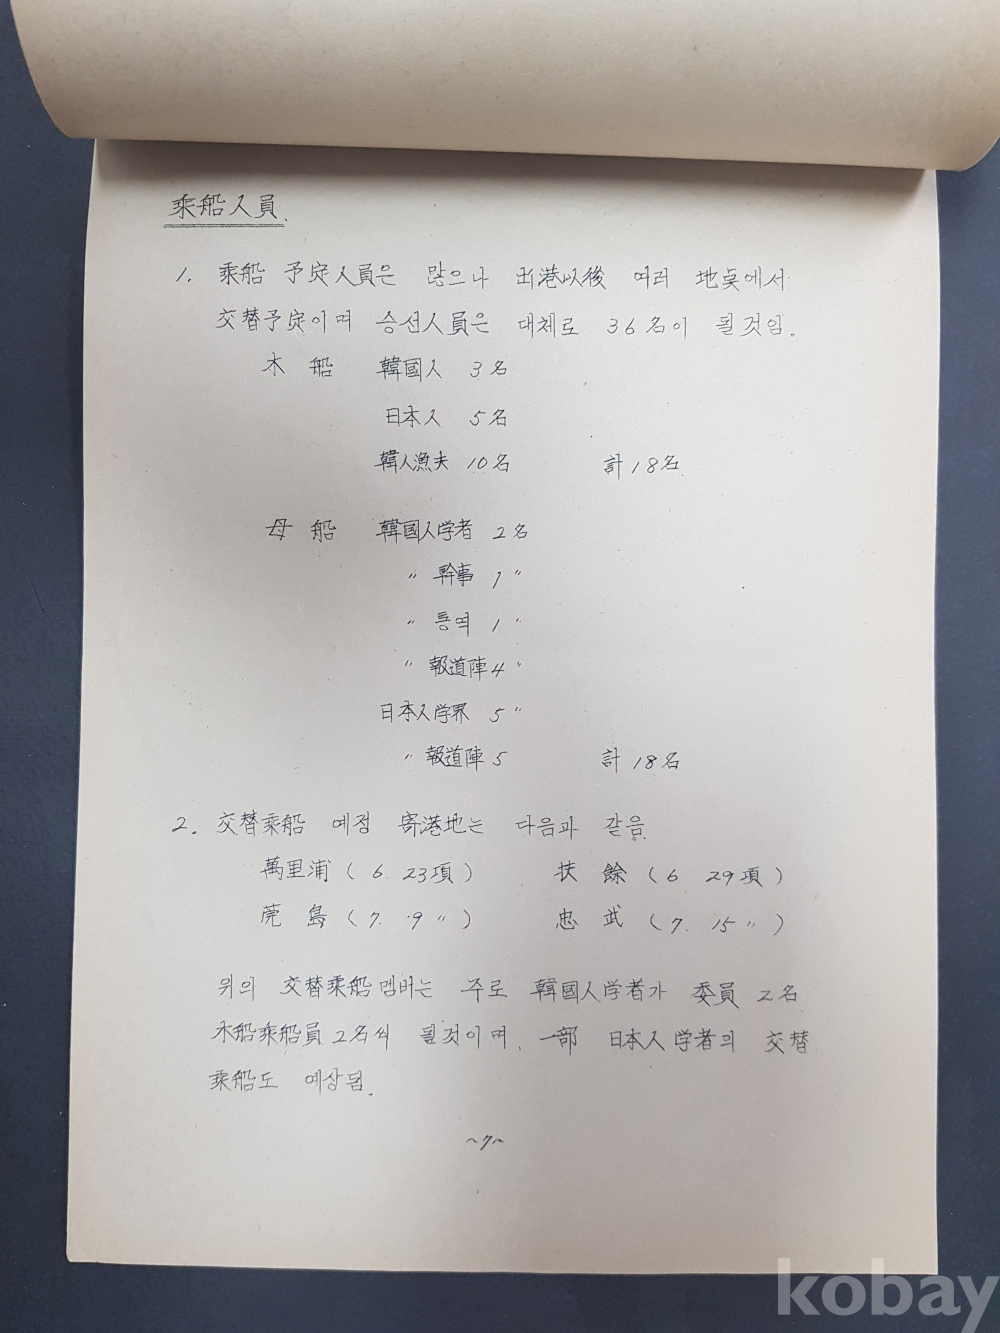 乘船人員.
1. 乘船 予定人員은 많으나 出港以後 여러 地點에서
交替予定이며 승선人員은 대체로 36名이 될것임.
木 船 韓國人 3名
日本人 5名
韓人漁夫 10名 計 18名
母 船 韓國人学者 2名
〃 幹事 1 〃
〃 통역 1 〃
〃 報道陣 4 〃
日本人学界 5 〃
〃 報道陣 5 計 18名
2. 交替乘船 예정 寄港地는 다음과 같음
萬里浦 ( 6. 23項 ) 扶 餘 ( 6 29項 )
莞 島 ( 7. 9 〃 ) 忠 武 ( 7. 15 〃 )
위의 交替乘船멤버는 주로 韓國人学者가 委員 2名
木船乘船員 2名씩 될것이며. 一部 日本人学者의 交替
乘船도 예상됨.
~7~
kobay